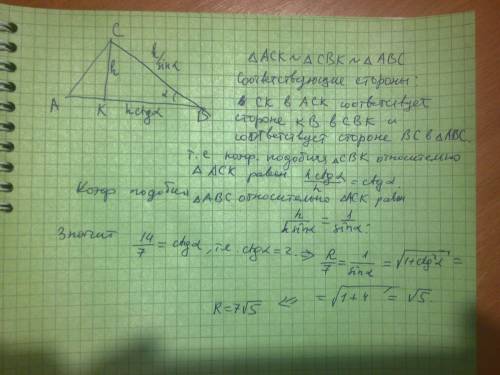 C
h
h/sinα
α
A
K
h ctgα
B
ΔACK ~ ΔCBK ~ ΔABC
Соответствующие стороны:
CK в ACK соответствует
стороне KB в CBK и
соответствует стороне BC в ΔABC.
т.е коэф. подобия ΔCBK относительно
ΔACK равен h ctgα / h = ctgα
Коэф подобия ΔABC относительно ΔACK равен
h / h sinα = 1 / sinα.
Значит 14/7 = ctgα, т.е. ctgα = 2. ⇒ R/7 = 1/sinα = √(1+ctg²α) =
= √(1+4) = √5.
R = 7√5 ⇐